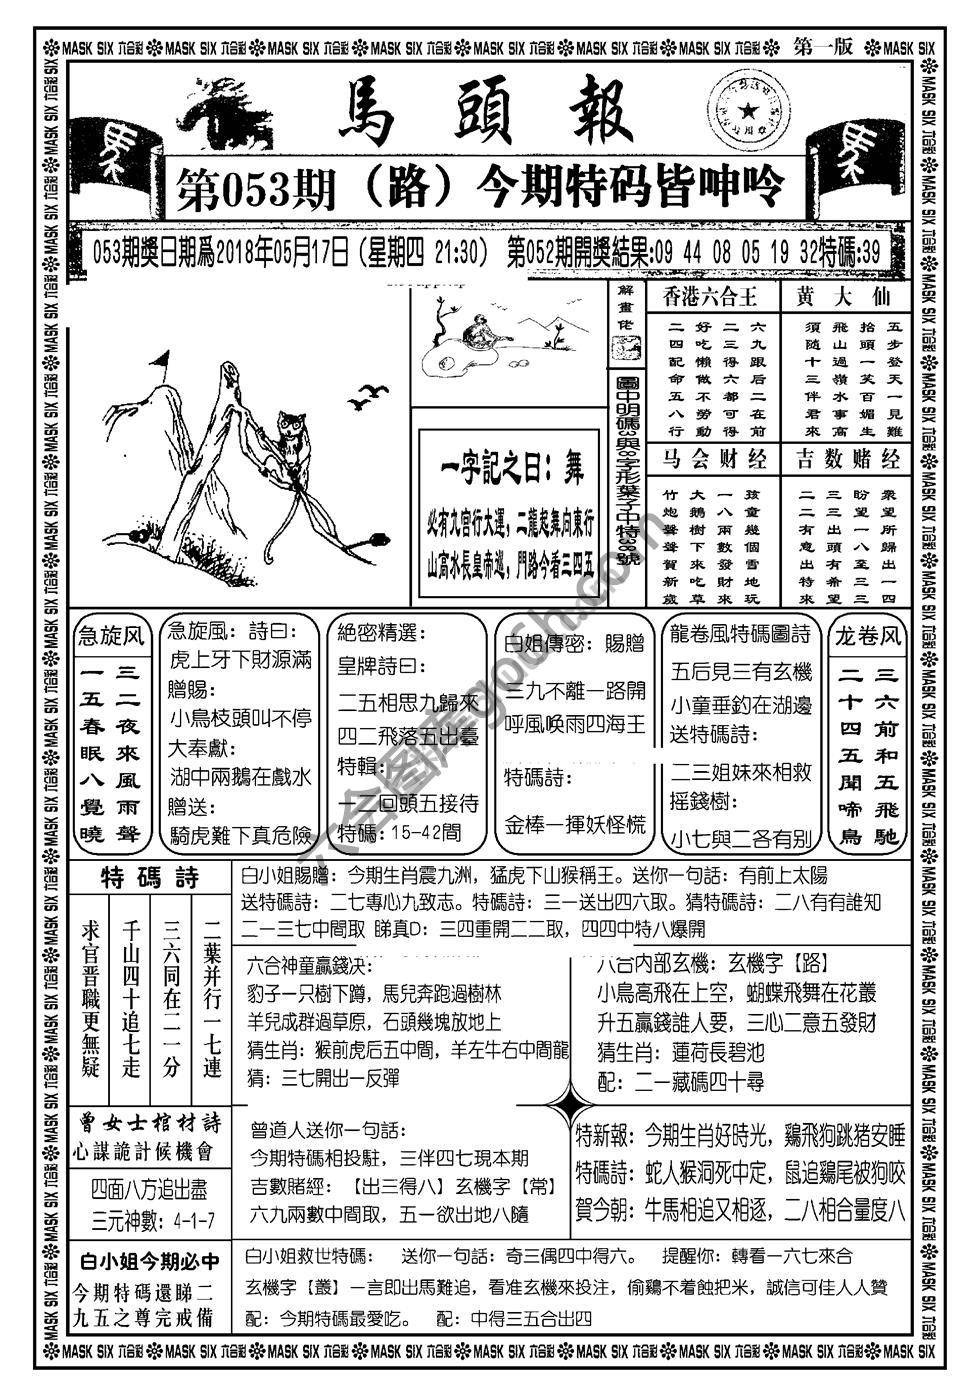 MASK SIX 六合彩 MASK SIX 六合彩 MASK SIX 六合彩 MASK SIX 六合彩 MASK SIX 六合彩 MASK SIX 六合彩 MASK SIX 六合彩 第一版 MASK SIX
馬頭報
第053期（路）今期特码皆呻吟
053期獎日期爲2018年05月17日（星期四 21:30） 第052期開獎結果:09 44 08 05 19 32特碼:39
解畫佬
圖中明碼3與8字形葉子中特38號
一字記之曰：舞
必有九宫行大運，二龍起舞向東行
山高水長皇帝巡，門路今看三四五
香港六合王
六九跟后二在前
二三得六都可得
好吃懶做不勞動
二四配命五八行
黄大仙
五步登天一見難
拾頭一笑百媚生
飛山過嶺水事高
須随十三伴君來
马会财经
孩童幾個雪地玩
一八兩數發財來
大鵝樹下來吃草
竹炮聲聲賀新歲
吉数赌经
衆望所歸出一四
盼望一八至三三
三三出頭有希望
二二有意出特來
急旋风
三二夜來風雨聲
一五春眠八覺曉
急旋風：詩曰：
虎上牙下財源滿
贈賜：
小鳥枝頭叫不停
大奉獻：
湖中兩鵝在戲水
贈送：
騎虎難下真危險
絶密精選：
皇牌詩曰：
二五相思九歸來
四二飛落五出臺
特輯：
十二回頭五接待
特碼：15-42間
白姐傳密：賜贈
三九不離一路開
呼風唤雨四海王
特碼詩：
金棒一揮妖怪慌
龍卷風特碼圖詩
五后見三有玄機
小童垂釣在湖邊
送特碼詩：
二三姐妹來相救
摇錢樹：
小七與二各有别
龙卷风
三六前和五飛馳
二十四五聞啼鳥
特碼詩
二葉并行一七連
三六同在二一分
千山四十追七走
求官晋職更無疑
白小姐賜贈：今期生肖震九洲，猛虎下山猴稱王。送你一句話：有前上太陽
送特碼詩：二七專心九致志。特碼詩：三一送出四六取。猜特碼詩：二八有有誰知
二一三七中間取 睇真D：三四重開二二取，四四中特八爆開
六合神童贏錢决：
豹子一只樹下蹲，馬兒奔跑過樹林
羊兒成群過草原，石頭幾塊放地上
猜生肖：猴前虎后五中間，羊左牛右中間龍
猜：三七開出一反彈
六合内部玄機：玄機字【路】
小鳥高飛在上空，蝴蝶飛舞在花叢
升五贏錢誰人要，三心二意五發財
猜生肖：蓮荷長碧池
配：二一藏碼四十尋
曾女士棺材詩
心謀詭計候機會
四面八方追出盡
三元神數：4-1-7
曾道人送你一句話：
今期特碼相投駐，三伴四七現本期
吉數賭經：【出三得八】玄機字【常】
六九兩數中間取，五一欲出地八隨
特新報：今期生肖好時光，鷄飛狗跳猪安睡
特碼詩：蛇人猴洞死中定，鼠追鷄尾被狗咬
賀今朝：牛馬相追又相逐，二八相合量度八
白小姐今期必中
今期特碼還睇二
九五之尊完戒備
白小姐救世特碼： 送你一句話：奇三偶四中得六。 提醒你：轉看一六七來合
玄機字【叢】一言即出馬難追，看准玄機來投注，偷鷄不着蝕把米，誠信可佳人人贊
配：今期特碼最愛吃。 配：中得三五合出四
MASK SIX 六合彩 MASK SIX 六合彩 MASK SIX 六合彩 MASK SIX 六合彩 MASK SIX 六合彩 MASK SIX 六合彩 MASK SIX 六合彩 MASK SIX 六合彩 MASK SIX
六合图库go6h.com